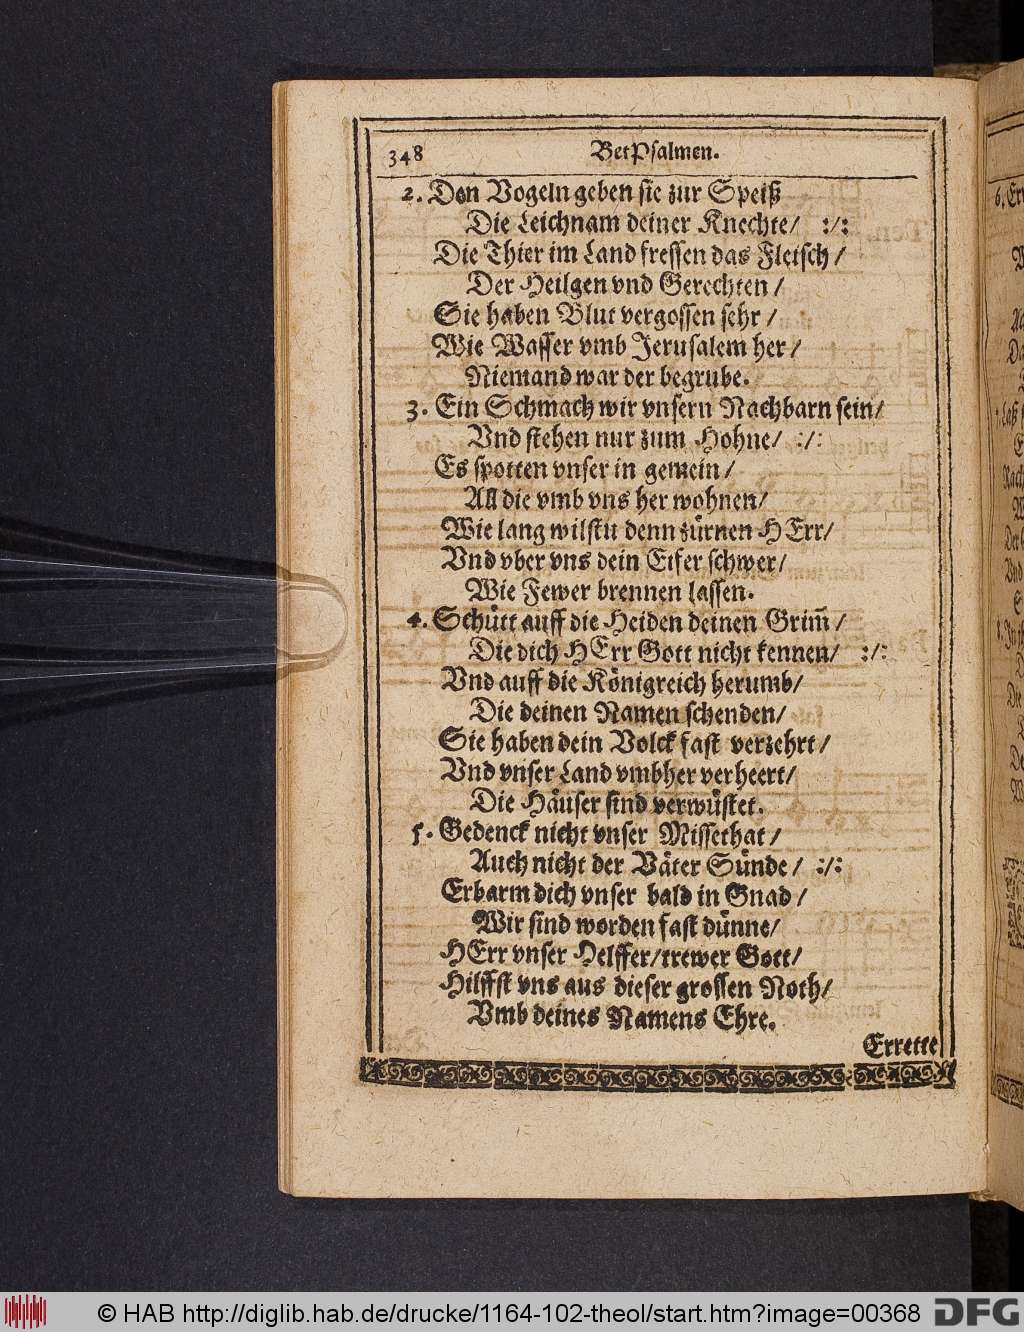 348 BetPsalmen.
2. Den Vogeln geben sie zur Speiß
Die Leichnam deiner Knechte/ :/:
Die Thier im Land fressen das Fleisch/
Der Heilgen vnd Gerechten/
Sie haben Blut vergossen sehr/
Wie Wasser vmb Jerusalem her/
Niemand war der begrube.
3. Ein Schmach wir vnsern Nachbarn sein/
Vnd stehen nur zum Hohne/ :/:
Es spotten vnser in gemein/
All die vmb vns her wohnen/
Wie lang wilstu denn zürnen HErr/
Vnd vber vns dein Eifer schwer/
Wie Fewer brennen lassen.
4. Schütt auff die Heiden deinen Grim̃/
Die dich HErr Gott nicht kennen/ :/:
Vnd auff die Königreich herumb/
Die deinen Namen schenden/
Sie haben dein Volck fast verzehrt/
Vnd vnser Land vmbher verheert/
Die Häuser sind verwüstet.
5. Gedenck nicht vnser Missethat/
Auch nicht der Väter Sünde/ :/:
Erbarm dich vnser bald in Gnad/
Wir sind worden fast dünne/
HErr vnser Helffer/trewer Gott/
Hilffst vns aus dieser grossen Noth/
Vmb deines Namens Ehre.
Errette
© HAB http://diglib.hab.de/drucke/1164-102-theol/start.htm?image=00368 DFG